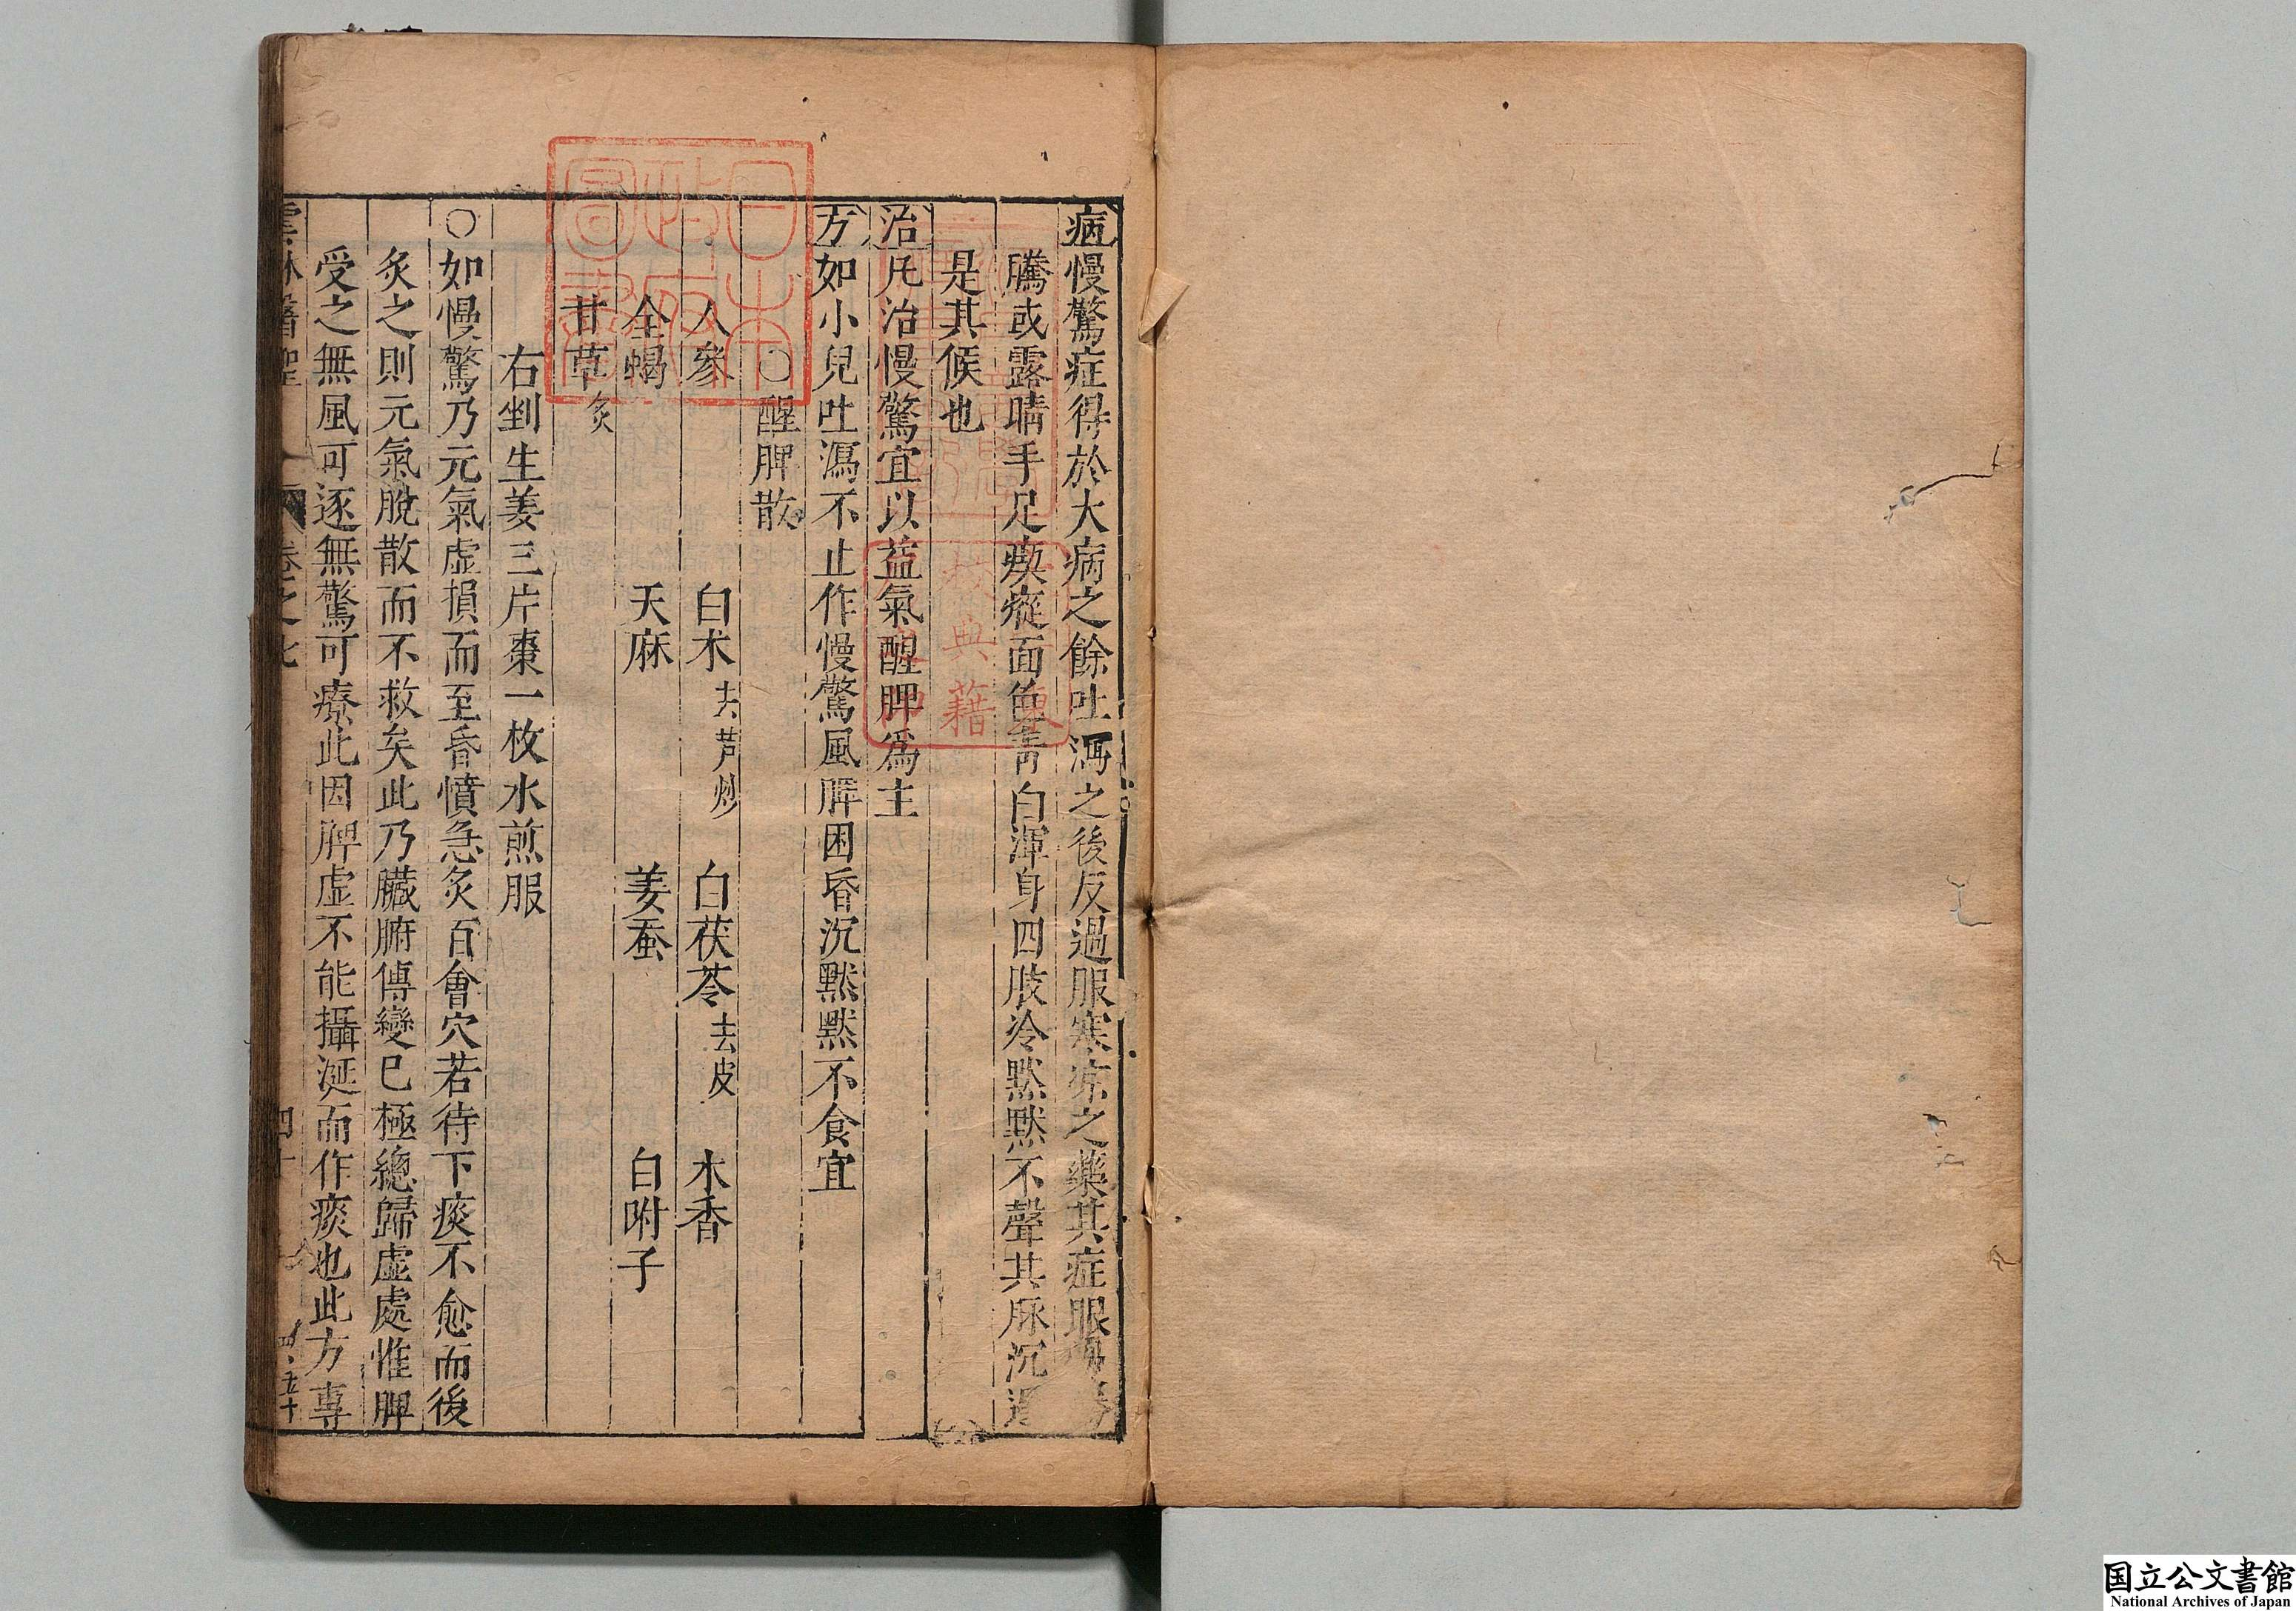 病慢驚症得於大病之餘吐瀉之後反過服寒凉之藥其症眼
騰或露睛手足瘈瘲面色青白渾身四肢冷默默不聲其脉沉遲
是其候也
治凡治慢驚宜以益氣醒脾爲主
方如小兒吐瀉不止作慢驚風脾困昏沉默默不食宜
○醒脾散
人參 白朮去芦炒 白茯苓去皮 木香
全蝎 天麻 姜蚕 白附子
甘草炙
右剉生姜三片棗一枚水煎服
○如慢驚乃元氣虛損而至昏憒急炙百會穴若待下痰不愈而後
炙之則元氣脫散而不救矣此乃臟腑傳變已極總歸虛處惟脾
受之無風可逐無驚可療此因脾虛不能攝涎而作痰也此方專
雲林醫聖 卷之七 四十
日本政府圖書
国立公文書館
National Archives of Japan